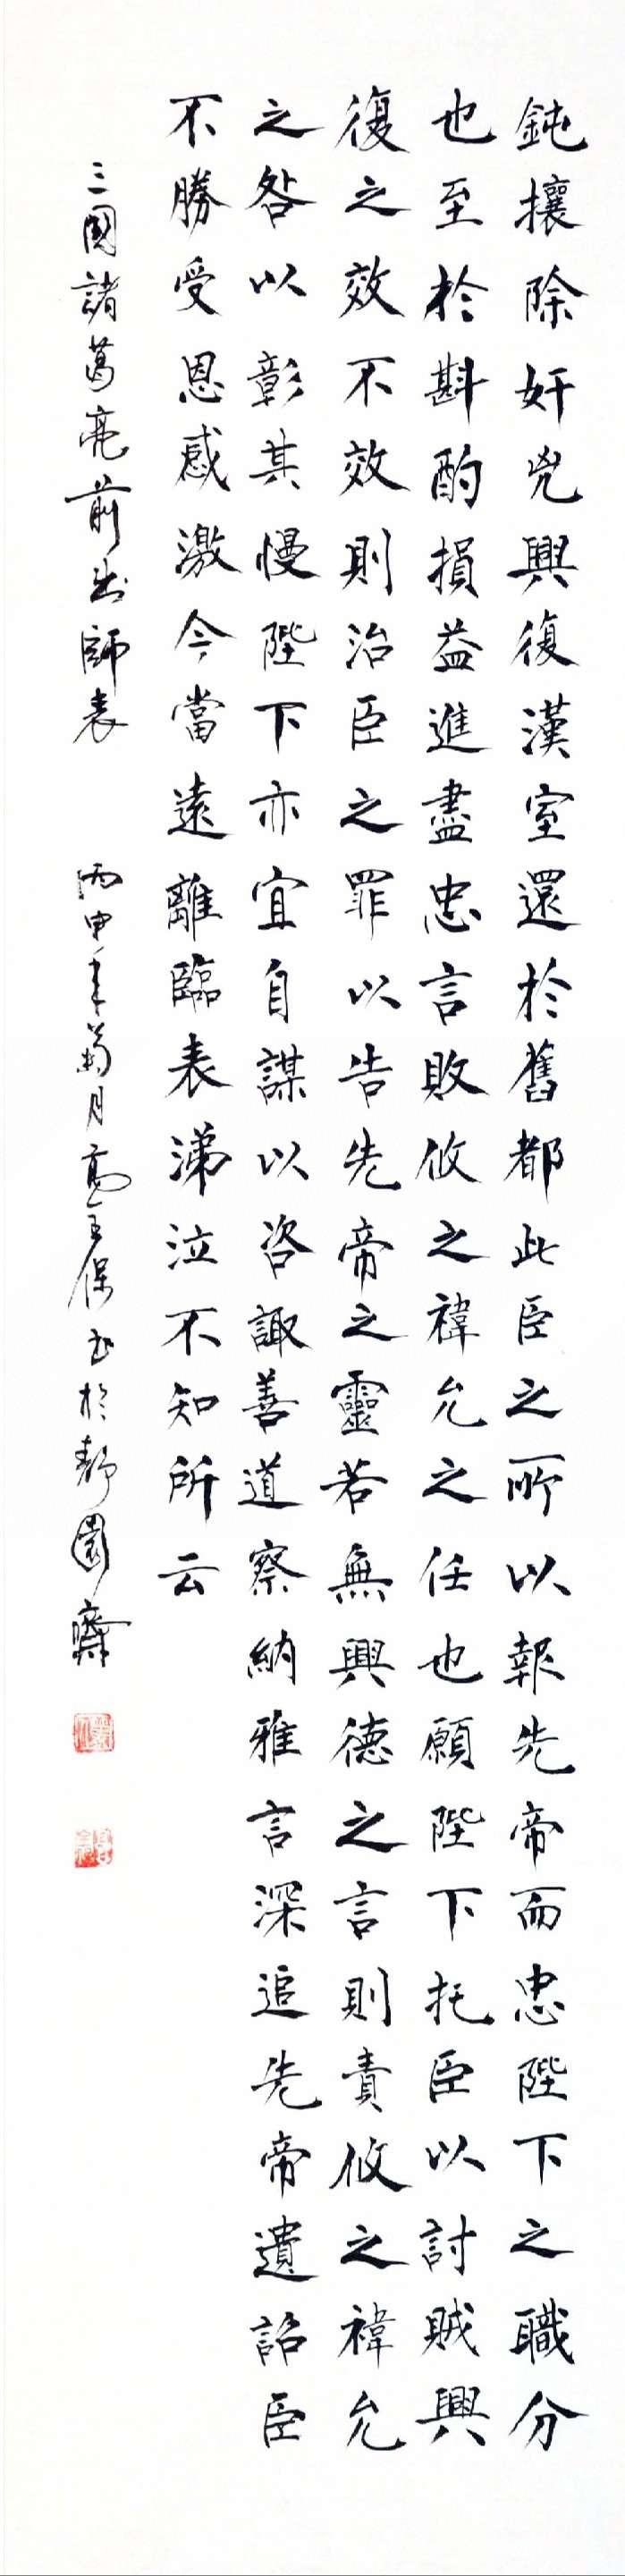 鈍攘除奸兇興復漢室還於舊都此臣之所以報先帝而忠陛下之職分
也至於斟酌損益進盡忠言敗攸之禕允之任也願陛下托臣以討賊興
復之效不效則治臣之罪以告先帝之靈若無興德之言則責攸之禕允
之咎以彰其慢陛下亦宜自謀以咨諏善道察納雅言深追先帝遺詔臣
不勝受恩感激今當遠離臨表涕泣不知所云
三國諸葛亮前出師表 丙申年菊月高玉保書於靜園齋